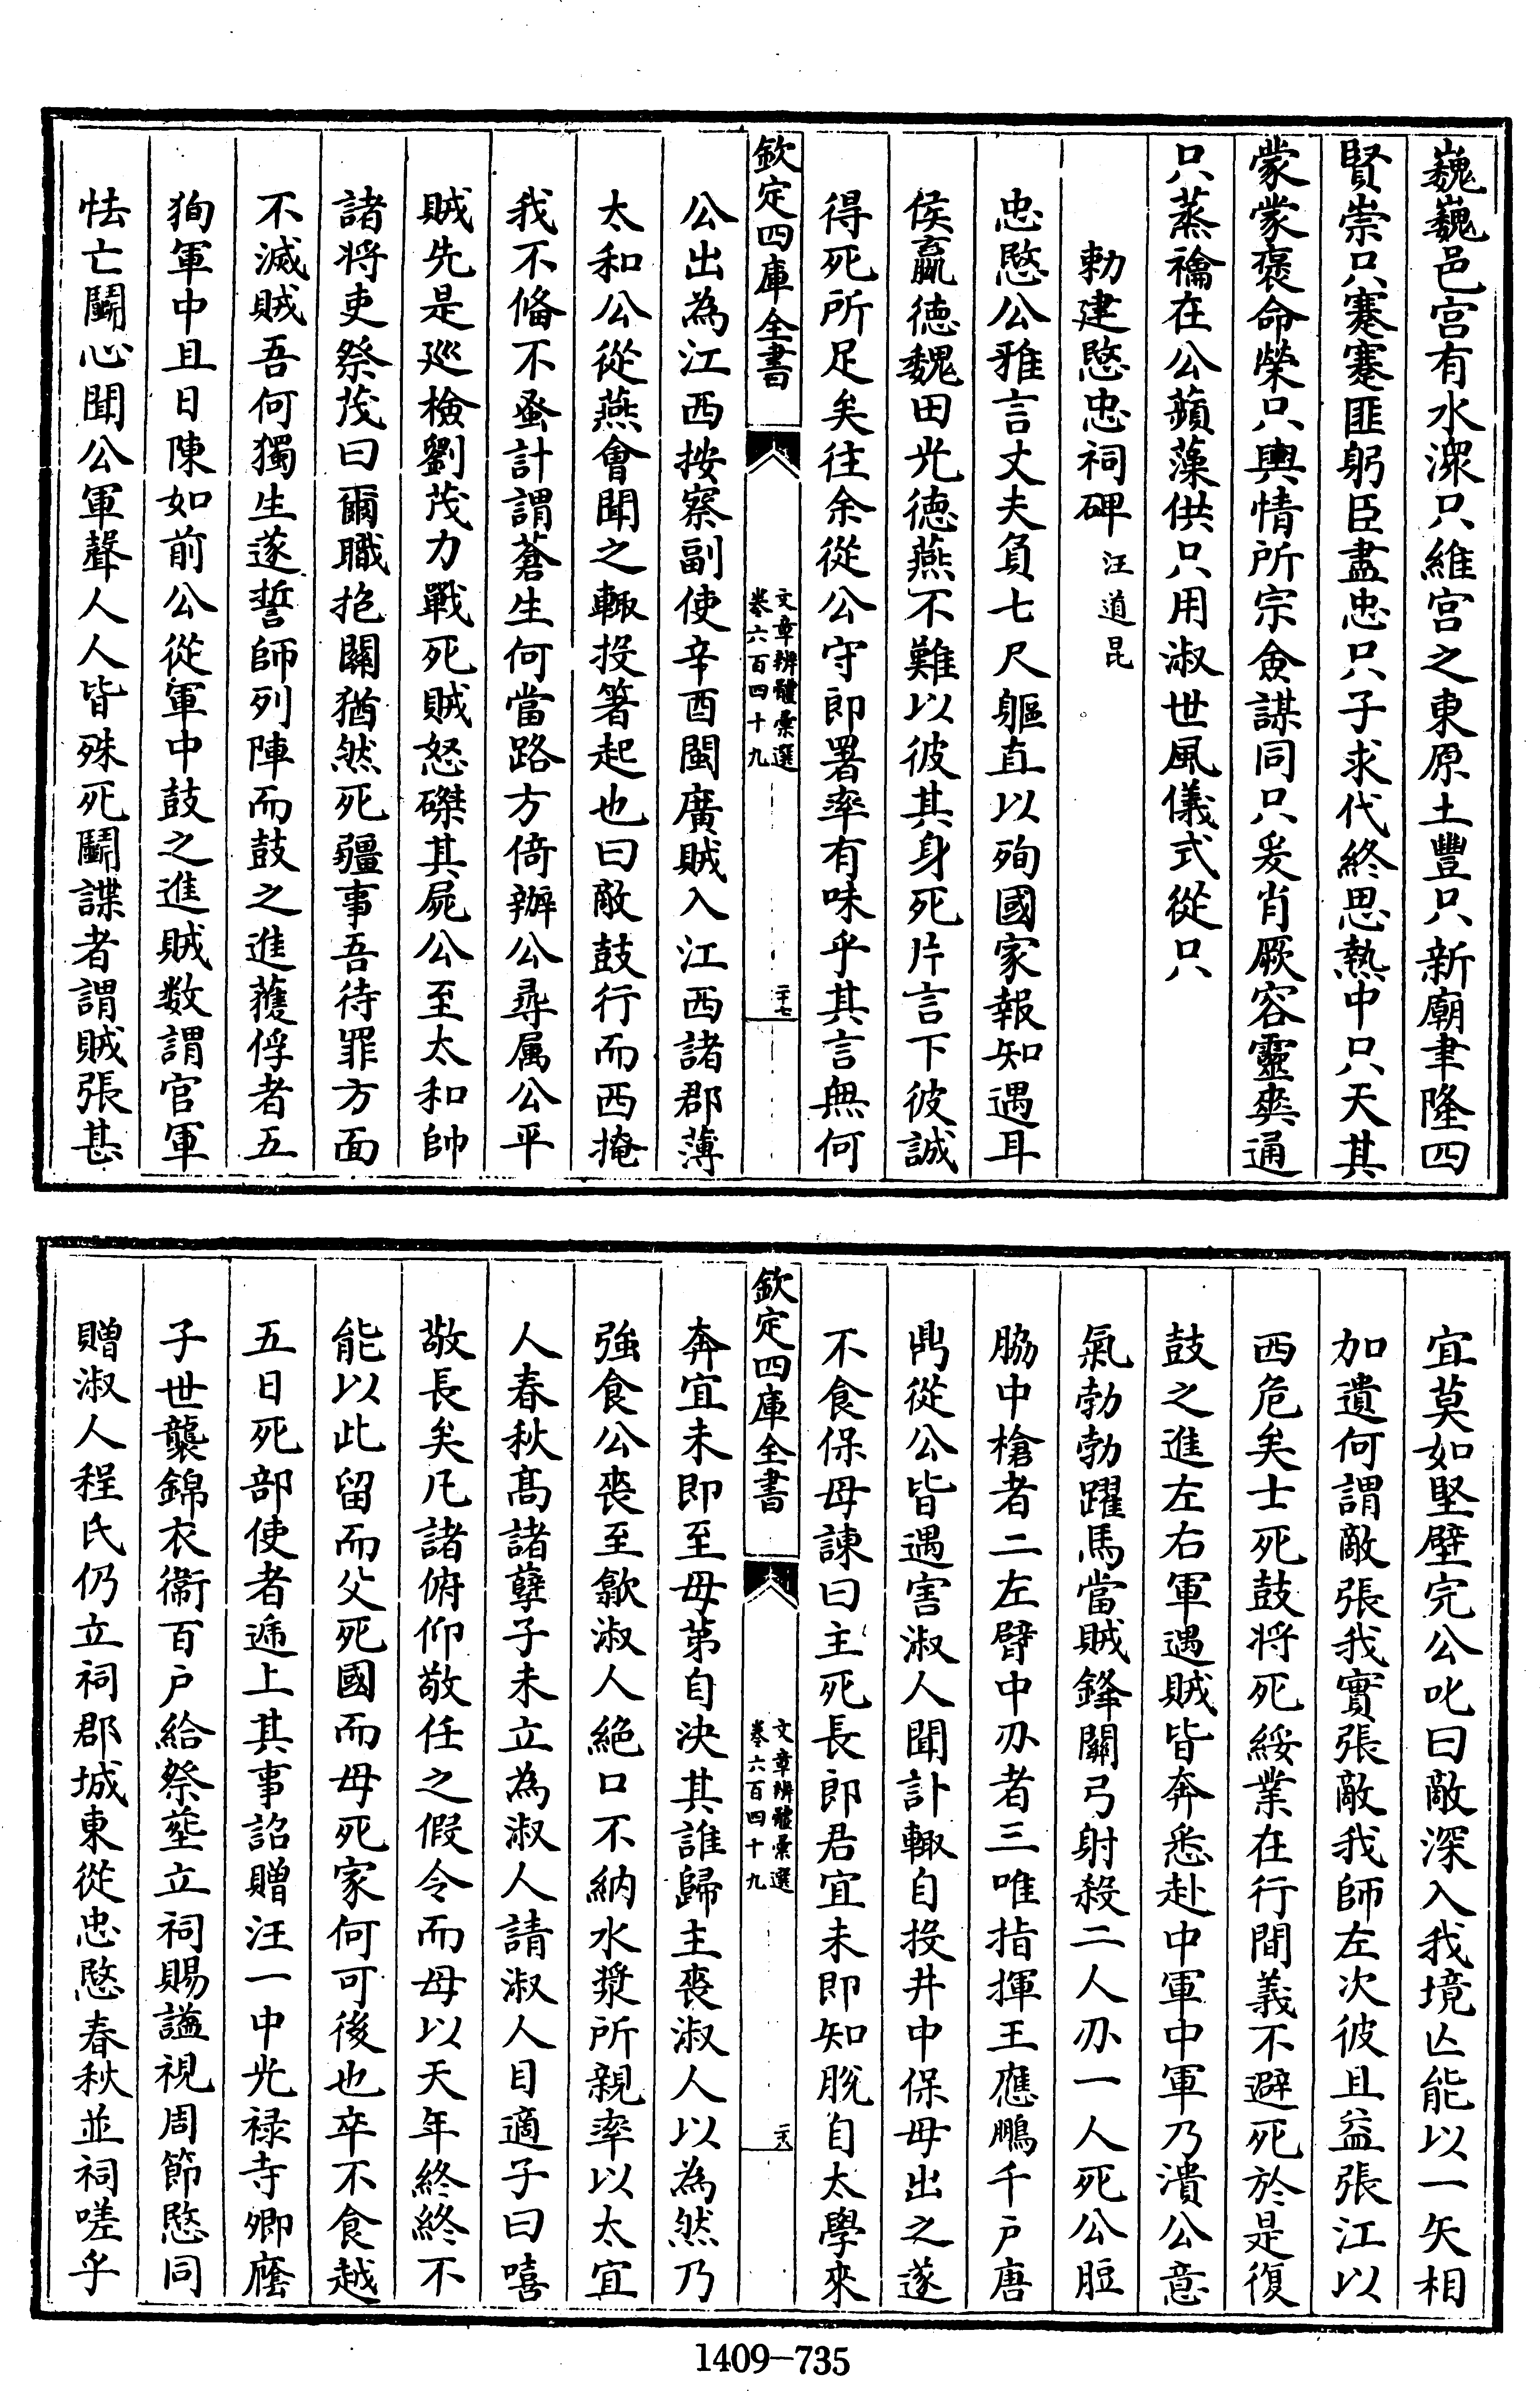 巍巍邑宫有水潨只維宫之東原土豐只新廟聿隆四
賢崇只蹇蹇匪躬臣盡忠只子求代終思熱中只天其
蒙蒙褒命榮只輿情所宗僉謀同只爰肖厥容靈爽通
只蒸禴在公蘋藻供只用淑世風儀式從只
勅建愍忠祠碑 汪道昆
忠愍公雅言丈夫負七尺軀直以殉國家報知遇耳
侯嬴德魏田光德燕不難以彼其身死片言下彼誠
得死所足矣往余從公守郎署率有味乎其言無何
欽定四庫全書 文章辨體彙選 卷六百四十九 二十七
公出為江西按察副使辛酉閩廣賊入江西諸郡薄
太和公從燕會聞之輒投箸起也曰敵鼓行而西掩
我不備不蚤計謂蒼生何當路方倚辦公尋属公平
賊先是廵檢劉茂力戰死賊怒磔其屍公至太和帥
諸将吏祭茂曰爾職抱關猶然死疆事吾待罪方面
不滅賊吾何獨生遂誓師列陣而鼓之進獲俘者五
狥軍中且日陳如前公從軍中鼓之進賊数謂官軍
怯亡鬭心聞公軍聲人人皆殊死鬭諜者謂賊張甚
宜莫如堅壁完公叱曰敵深入我境亾能以一矢相
加遺何謂敵張我實張敵我師左次彼且益張江以
西危矣士死鼓将死綏業在行間義不避死於是復
鼓之進左右軍遇賊皆奔悉赴中軍中軍乃潰公意
氣勃勃躍馬當賊鋒關弓射殺二人刅一人死公脰
脇中槍者二左臂中刅者三唯指揮王應鵬千户唐
鼎從公皆遇害淑人聞訃輒自投井中保母出之遂
不食保母諫曰主死長郎君宜未即知脫自太學來
欽定四庫全書 文章辨體彙選 卷六百四十九 二十八
奔宜未即至毋第自決其誰歸主喪淑人以為然乃
強食公喪至歙淑人絶口不納水漿所親率以太宜
人春秋高諸孽子未立為淑人請淑人目適子曰嘻
敬長矣凡諸俯仰敬任之假令而母以天年終終不
能以此留而父死國而母死家何可後也卒不食越
五日死部使者遞上其事詔贈汪一中光禄寺卿廕
子世襲錦衣衞百户給祭塟立祠賜諡視周節愍同
贈淑人程氏仍立祠郡城東從忠愍春秋並祠嗟乎
1409-735